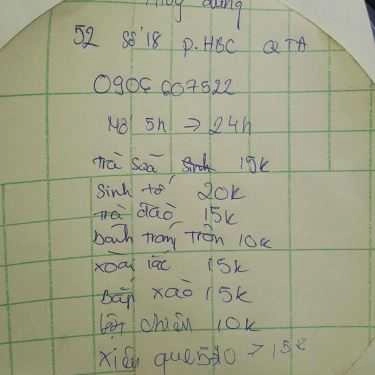 Thùy dung
52 Số 18 P. HBC Q TĐ
0906 607522
Mở 5h → 24h
trà sữa 15k
Sinh tố 20k
trà đào 15k
bánh tráng trộn 10k
xoài lắc 15k
Bắp xào 15k
chiên 10k
xiên que 510 → 15k